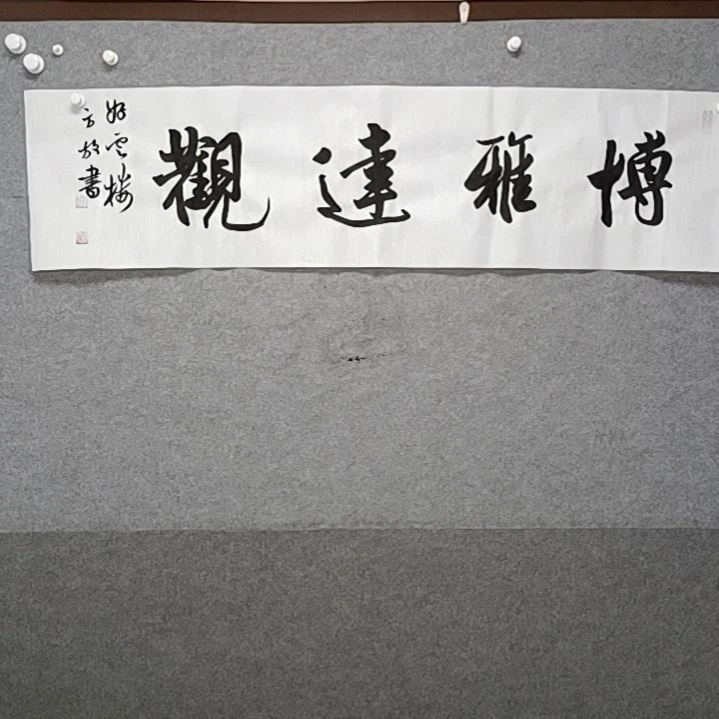 博雅達觀
好雲樓
方放書